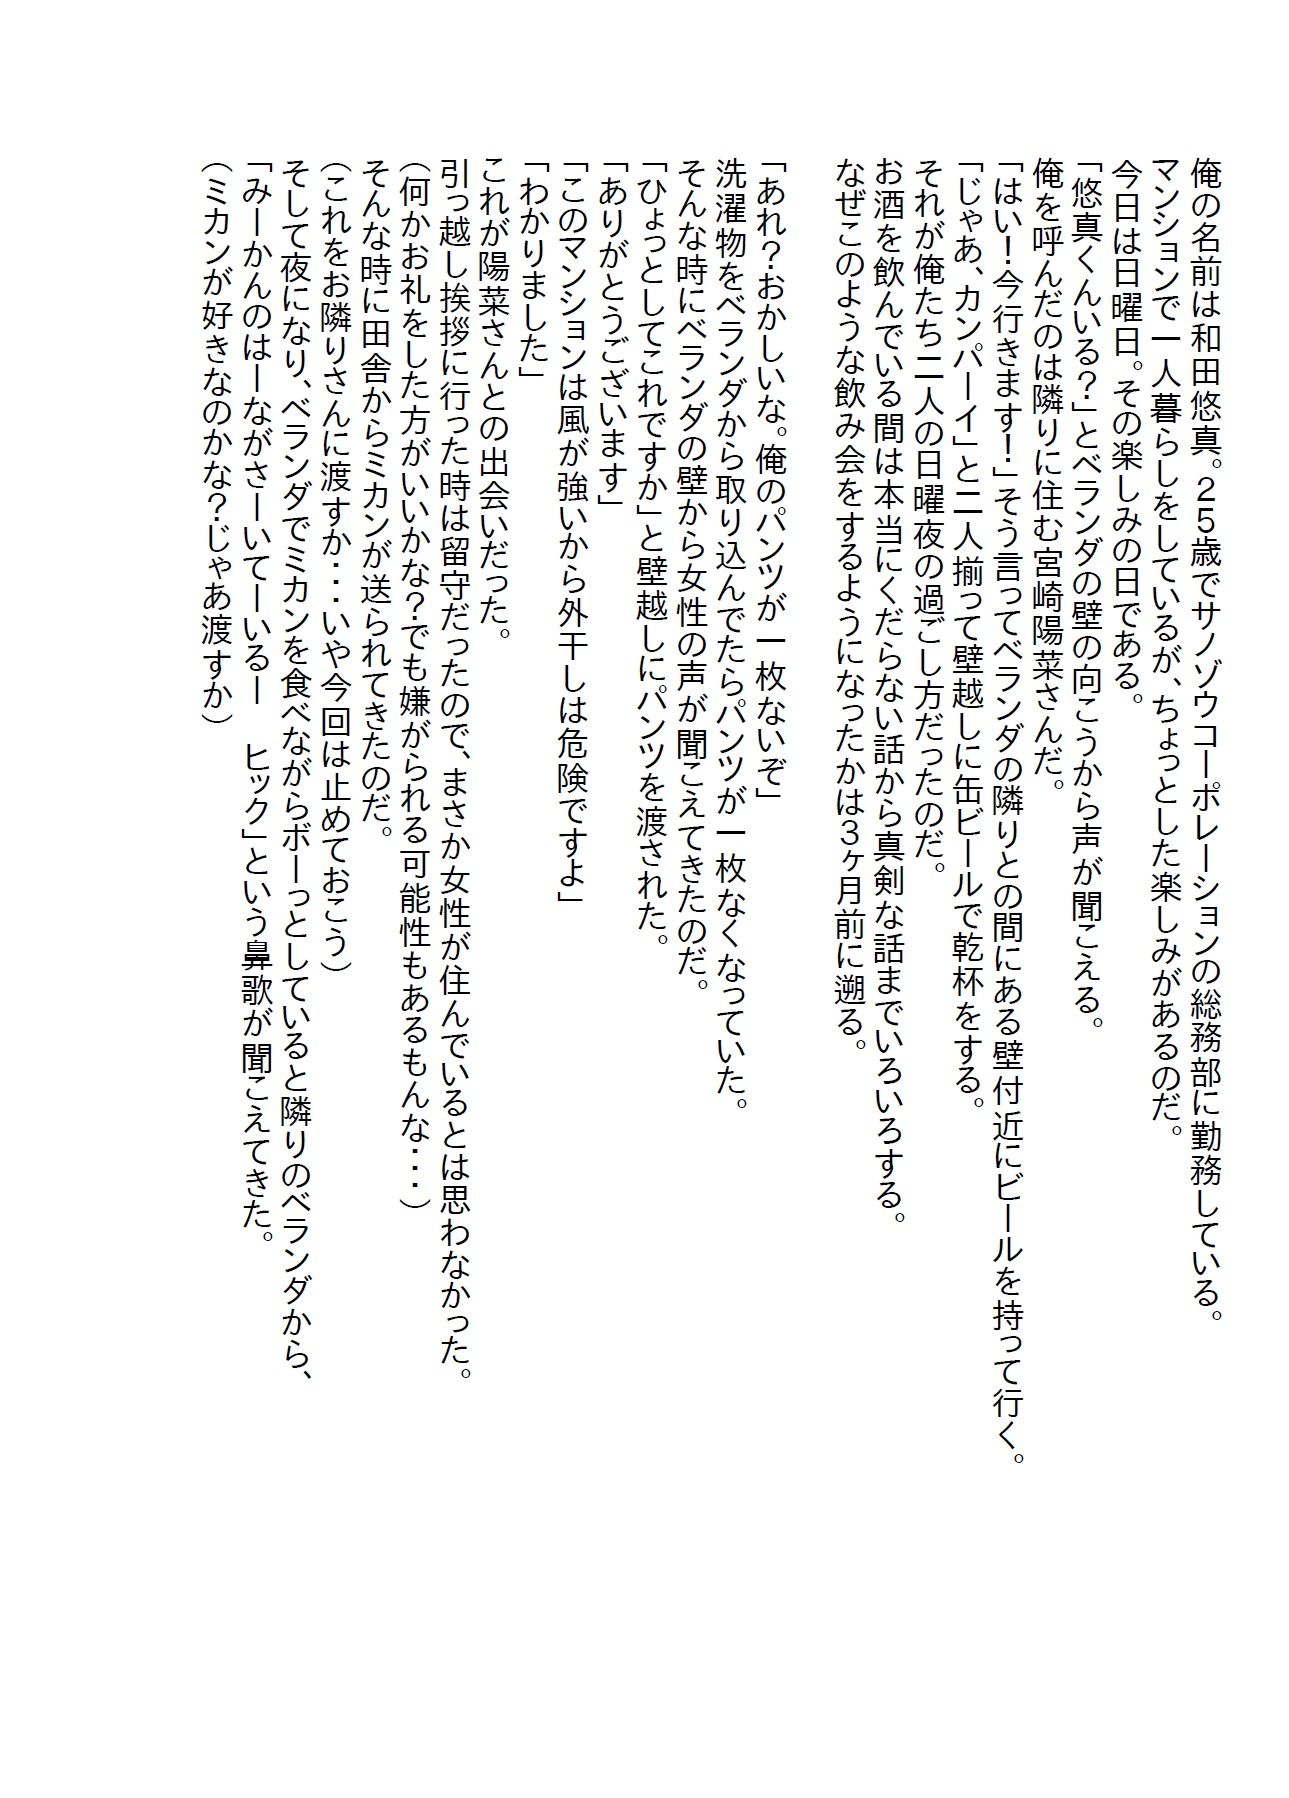 俺の名前は和田悠真。２５歳でサノゾウコーポレーションの総務部に勤務している。
マンションで一人暮らしをしているが、ちょっとした楽しみがあるのだ。
今日は日曜日。その楽しみの日である。
「悠真くんいる？」とベランダの壁の向こうから声が聞こえる。
俺を呼んだのは隣りに住む宮崎陽菜さんだ。
「はい！今行きます！」そう言ってベランダの隣りとの間にある壁付近にビールを持って行く。
「じゃあ、カンパーイ」と二人揃って壁越しに缶ビールで乾杯をする。
それが俺たち二人の日曜夜の過ごし方だったのだ。
お酒を飲んでいる間は本当にくだらない話から真剣な話までいろいろする。
なぜこのような飲み会をするようになったかは３ヶ月前に遡る。
「あれ？おかしいな。俺のパンツが一枚ないぞ」
洗濯物をベランダから取り込んでたらパンツが一枚なくなっていた。
そんな時にベランダの壁から女性の声が聞こえてきたのだ。
「ひょっとしてこれですか」と壁越しにパンツを渡された。
「ありがとうございます」
「このマンションは風が強いから外干しは危険ですよ」
「わかりました」
これが陽菜さんとの出会いだった。
引っ越し挨拶に行った時は留守だったので、まさか女性が住んでいるとは思わなかった。
（何かお礼をした方がいいかな？でも嫌がられる可能性もあるもんな・・・）
そんな時に田舎からミカンが送られてきたのだ。
（これをお隣りさんに渡すか・・・いや今回は止めておこう）
そして夜になり、ベランダでミカンを食べながらボーっとしていると隣りのベランダから、
「みーかんのはーながさーいてーいるー　ヒック」という鼻歌が聞こえてきた。
（ミカンが好きなのかな？じゃあ渡すか）